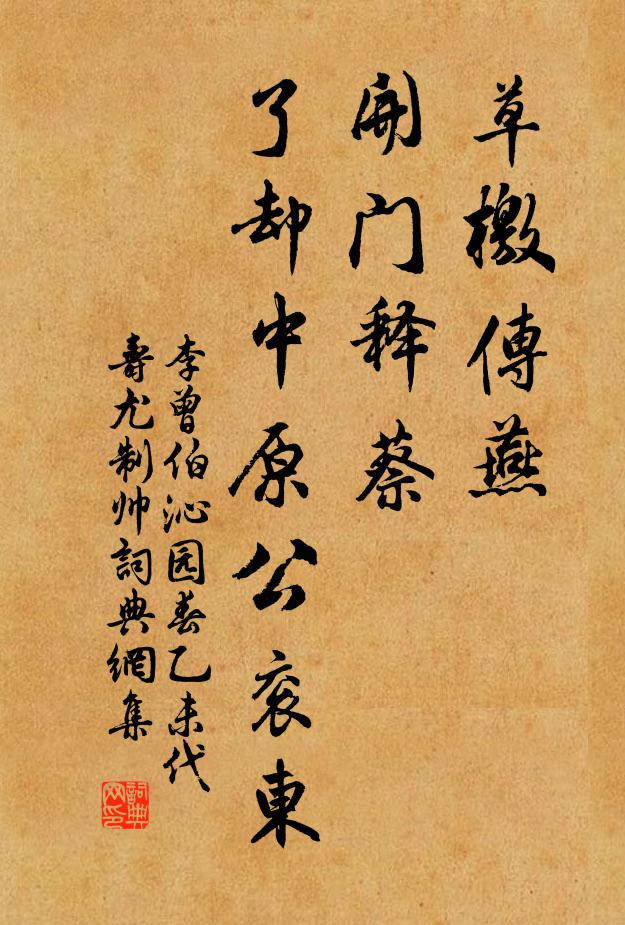 草檄傳燕
開门释蔡
了却中原公衮東
李曾伯沁园春乙未代
壽尤制帅詞典網集
詞典网印